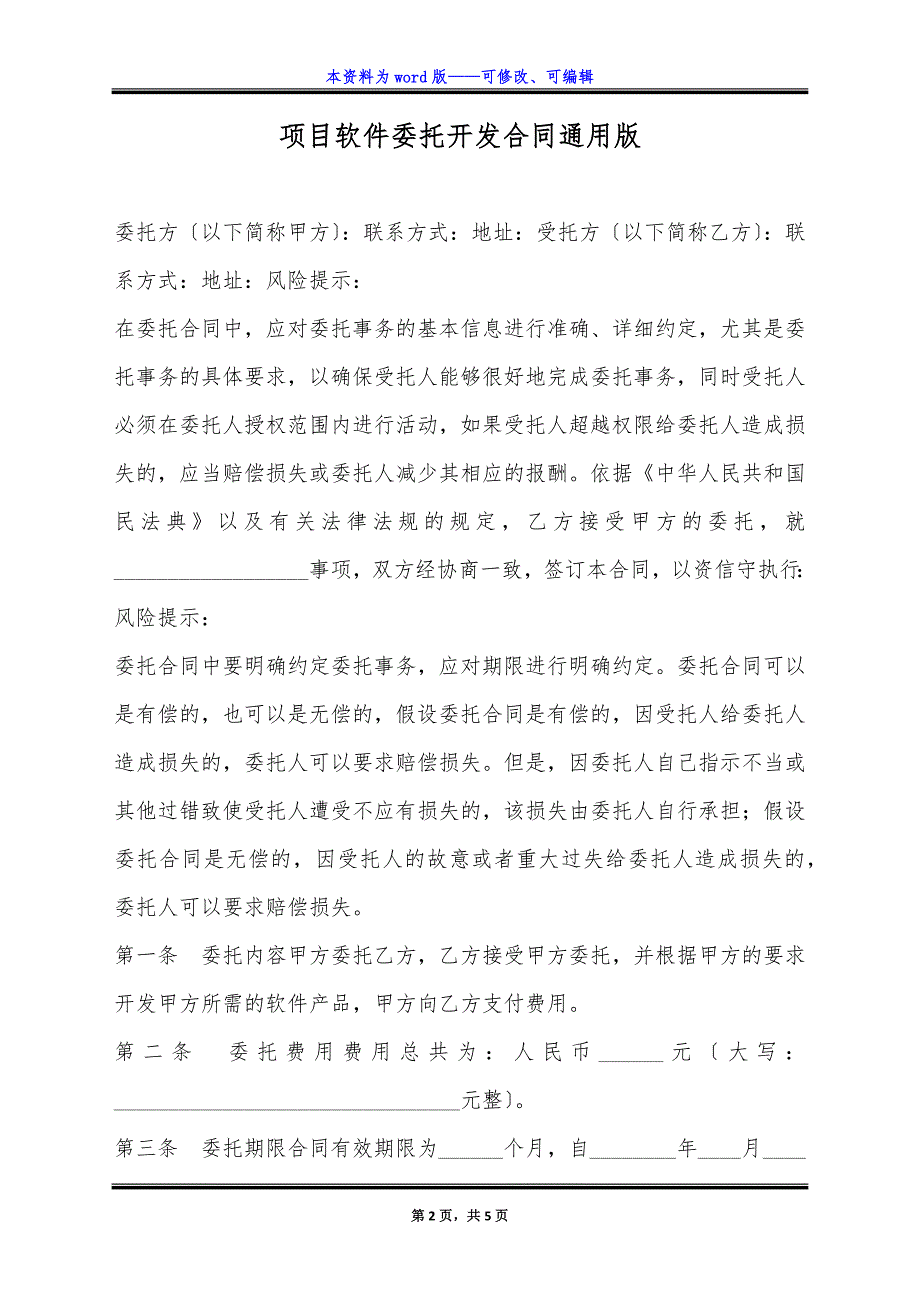 本资料为 word 版——可修改、可编辑
项目软件委托开发合同通用版
委托方〔以下简称甲方〕：联系方式：地址：受托方〔以下简称乙方〕：联
系方式：地址：风险提示：
在委托合同中，应对委托事务的基本信息进行准确、详细约定，尤其是委
托事务的具体要求，以确保受托人能够很好地完成委托事务，同时受托人
必须在委托人授权范围内进行活动，如果受托人超越权限给委托人造成损
失的，应当赔偿损失或委托人减少其相应的报酬。依据《中华人民共和国
民法典》以及有关法律法规的规定，乙方接受甲方的委托，就
__________________事项，双方经协商一致，签订本合同，以资信守执行：
风险提示：
委托合同中要明确约定委托事务，应对期限进行明确约定。委托合同可以
是有偿的，也可以是无偿的，假设委托合同是有偿的，因受托人给委托人
造成损失的，委托人可以要求赔偿损失。但是，因委托人自己指示不当或
其他过错致使受托人遭受不应有损失的，该损失由委托人自行承担；假设
委托合同是无偿的，因受托人的故意或者重大过失给委托人造成损失的，
委托人可以要求赔偿损失。
第一条　委托内容甲方委托乙方，乙方接受甲方委托，并根据甲方的要求
开发甲方所需的软件产品，甲方向乙方支付费用。
第二条　委托费用费用总共为：人民币______元〔大写：
________________________________元整〕。
第三条　委托期限合同有效期限为______个月，自________年____月____
第 2 页，共 5 页